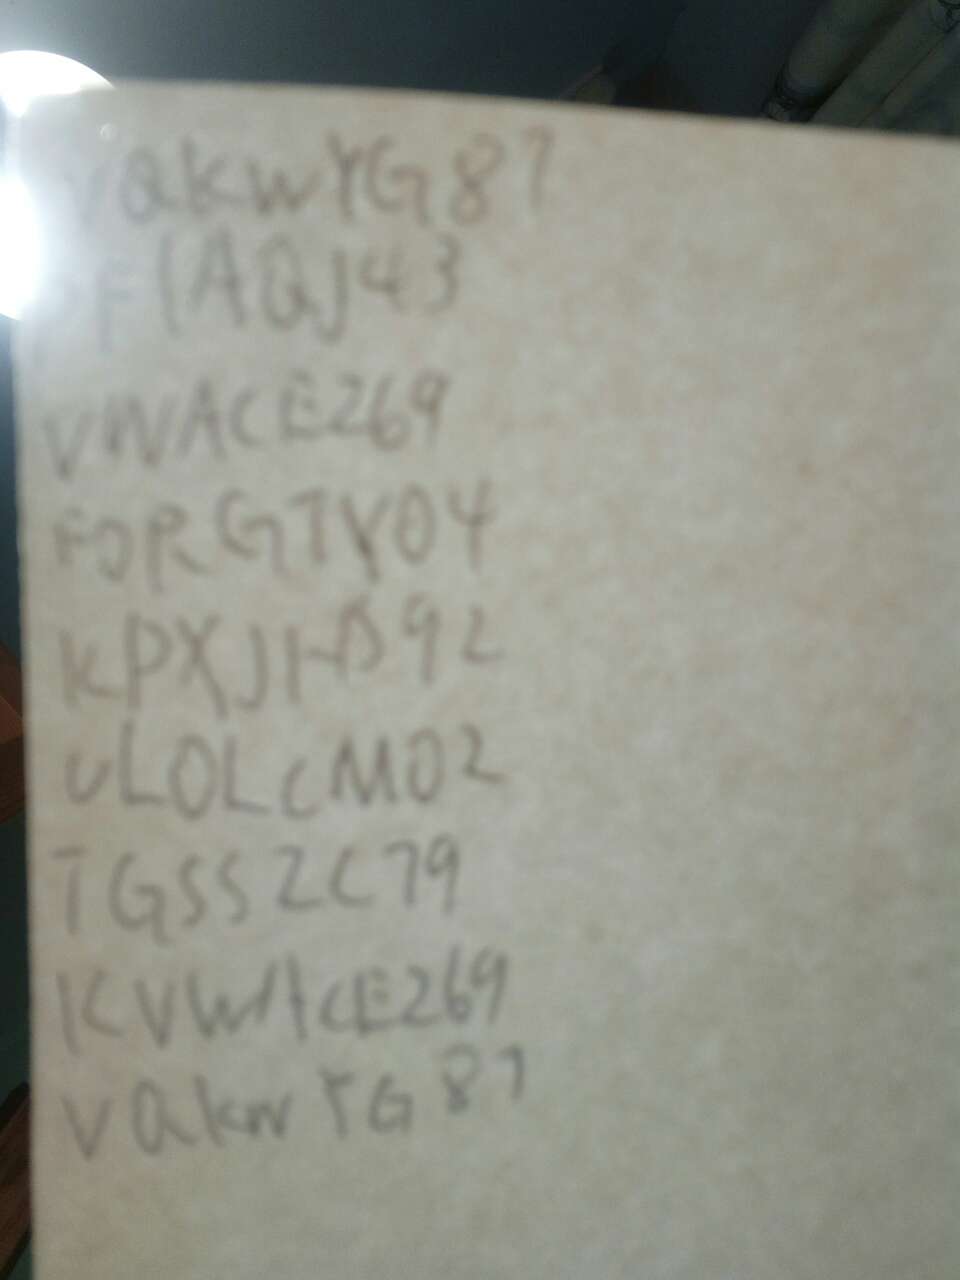 VQKWYG87
PFIAQJ43
VWACE269
FORGTY04
KPXJHD92
ULOLCMO2
TGSSZC79
KVWACE269
VQKWYG87